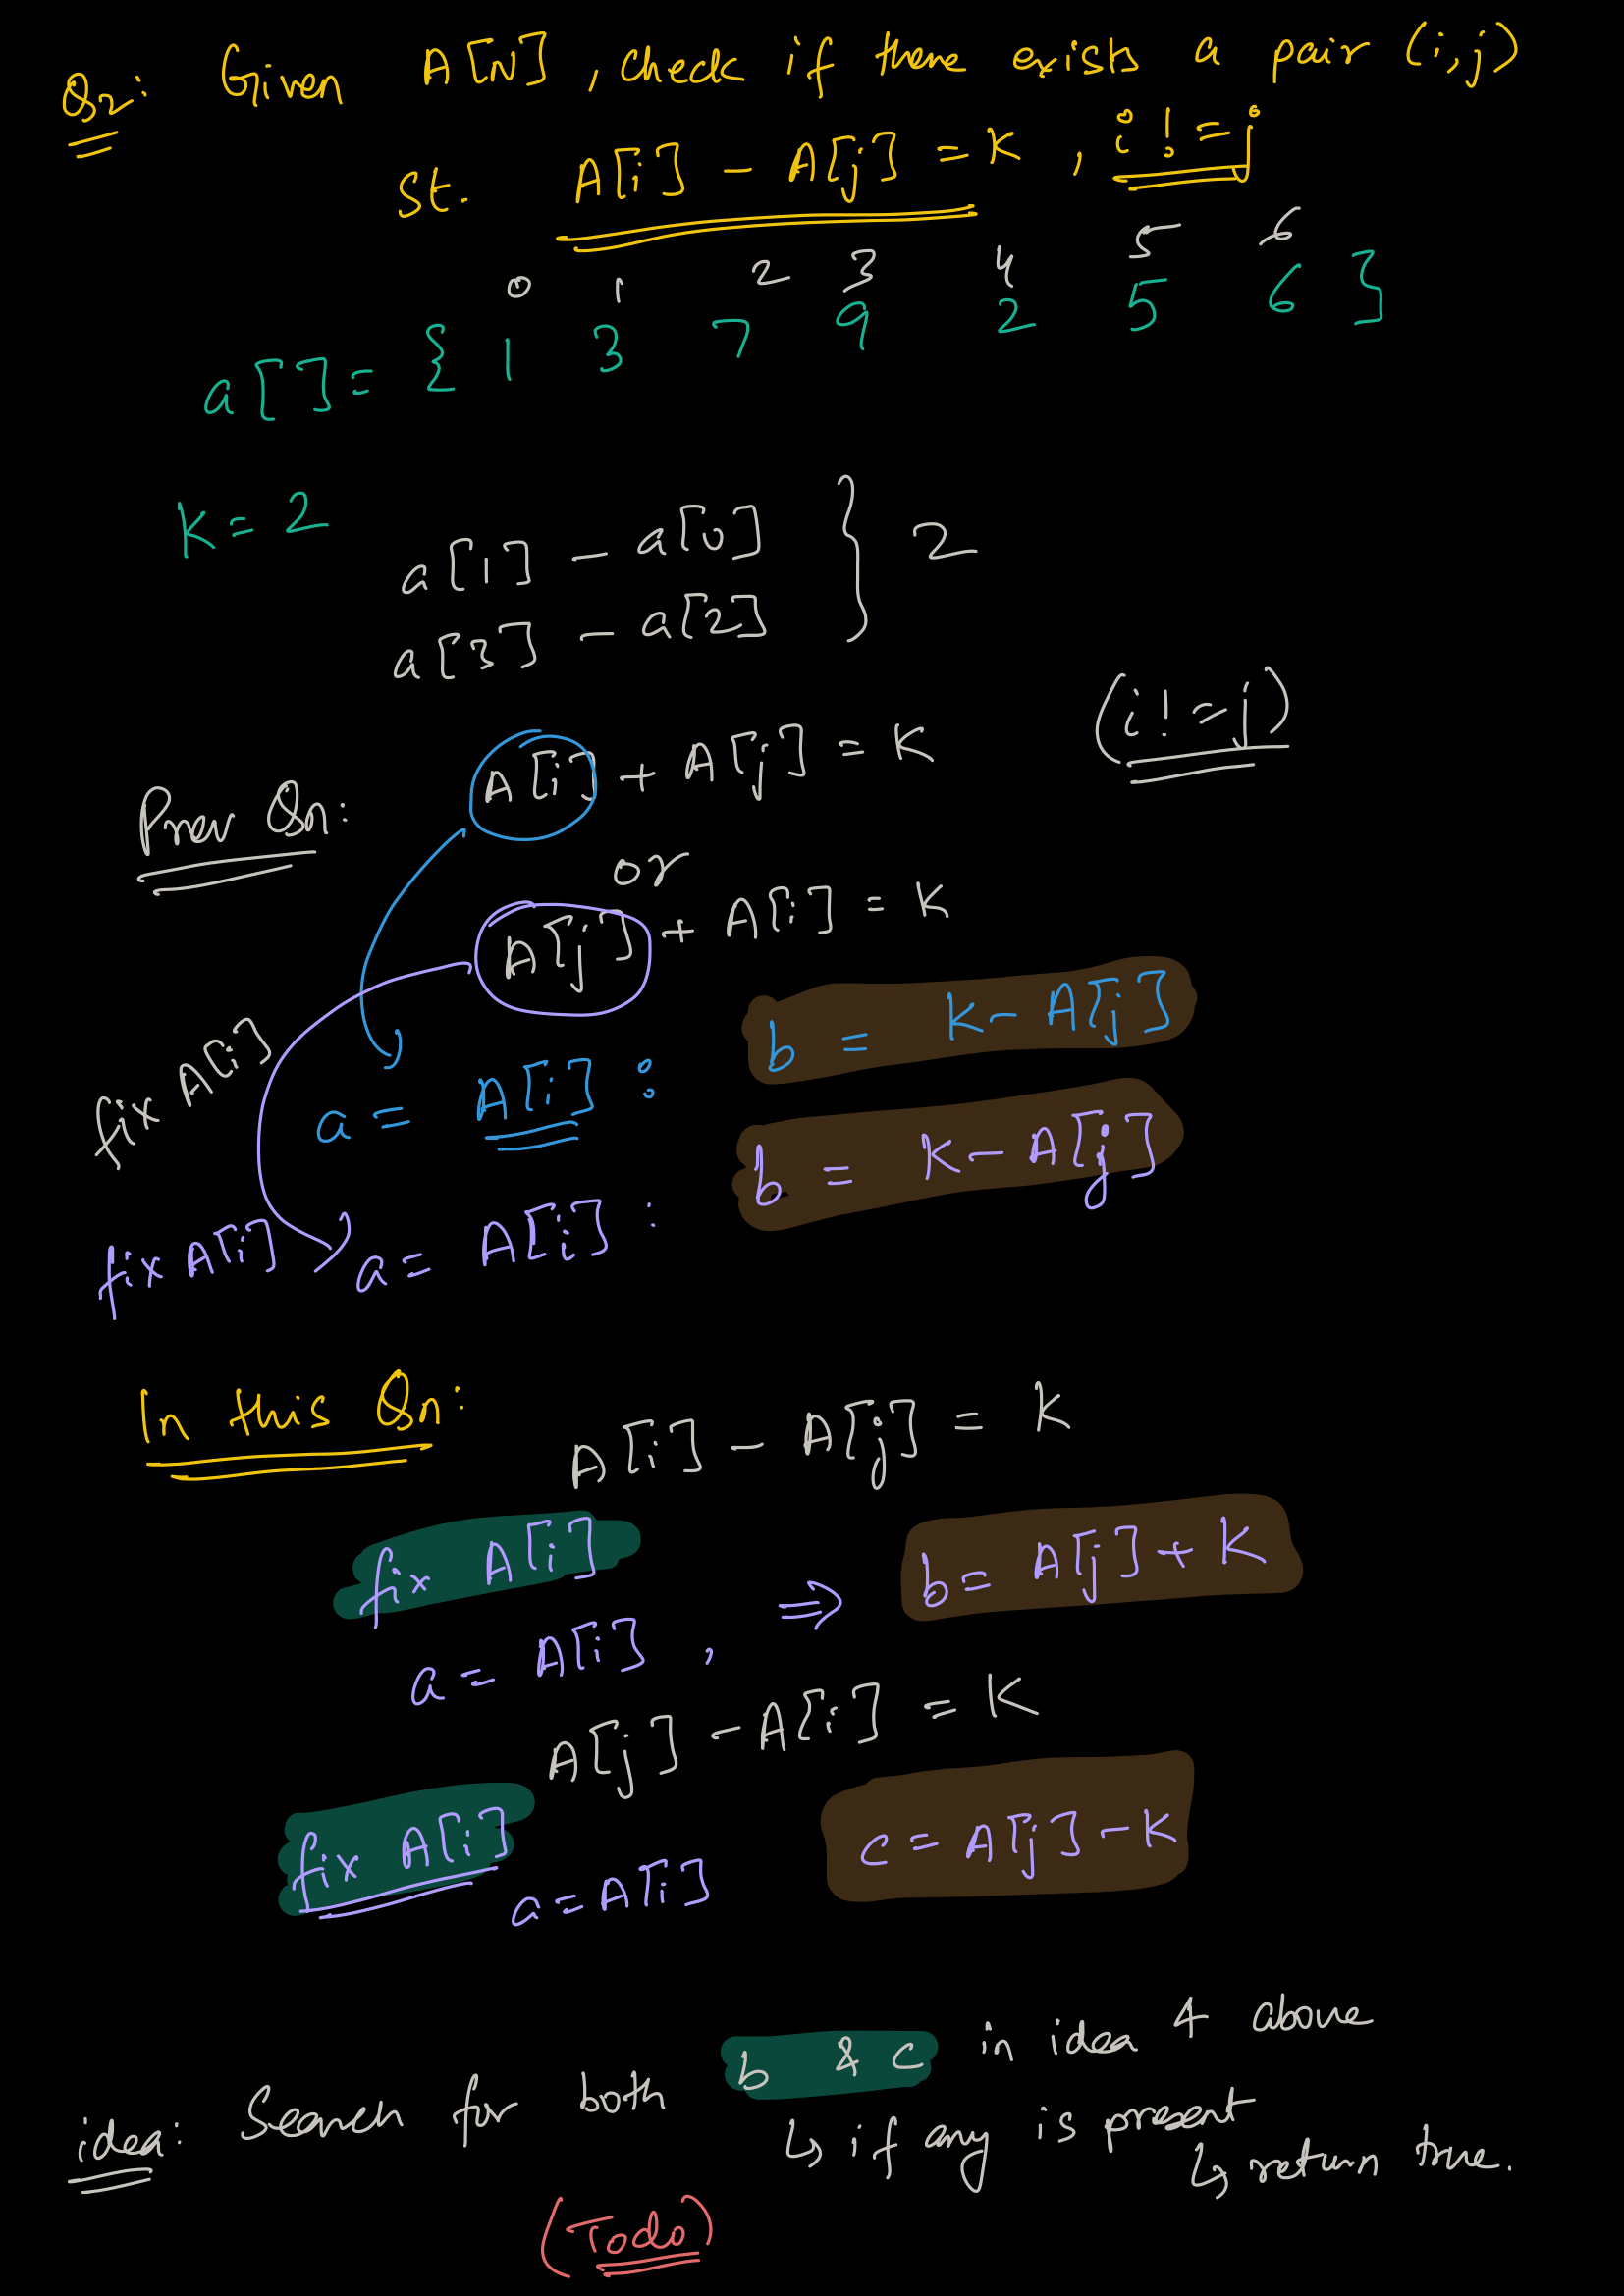 Q2: Given A[N], check if there exists a pair (i,j)
st. A[i] - A[j] = K, i != j
0 1 2 3 4 5 6
a[] = { 1 3 7 9 2 5 6 }
K = 2
a[1] - a[0] } 2
a[3] - a[2]
Prev Qn: A[i] + A[j] = K (i != j)
or
A[j] + A[i] = K
fix A[i] a = A[i] : b = K - A[j]
fix A[i] a = A[i] : b = K - A[j]
In this Qn: A[i] - A[j] = K
fix A[i]
a = A[i], ⇒ b = A[j] + K
A[j] - A[i] = K
fix A[i] a = A[i] c = A[j] - K
idea: Search for both b & c in idea 4 above
↳ if any is present
↳ return true.
(Todo)